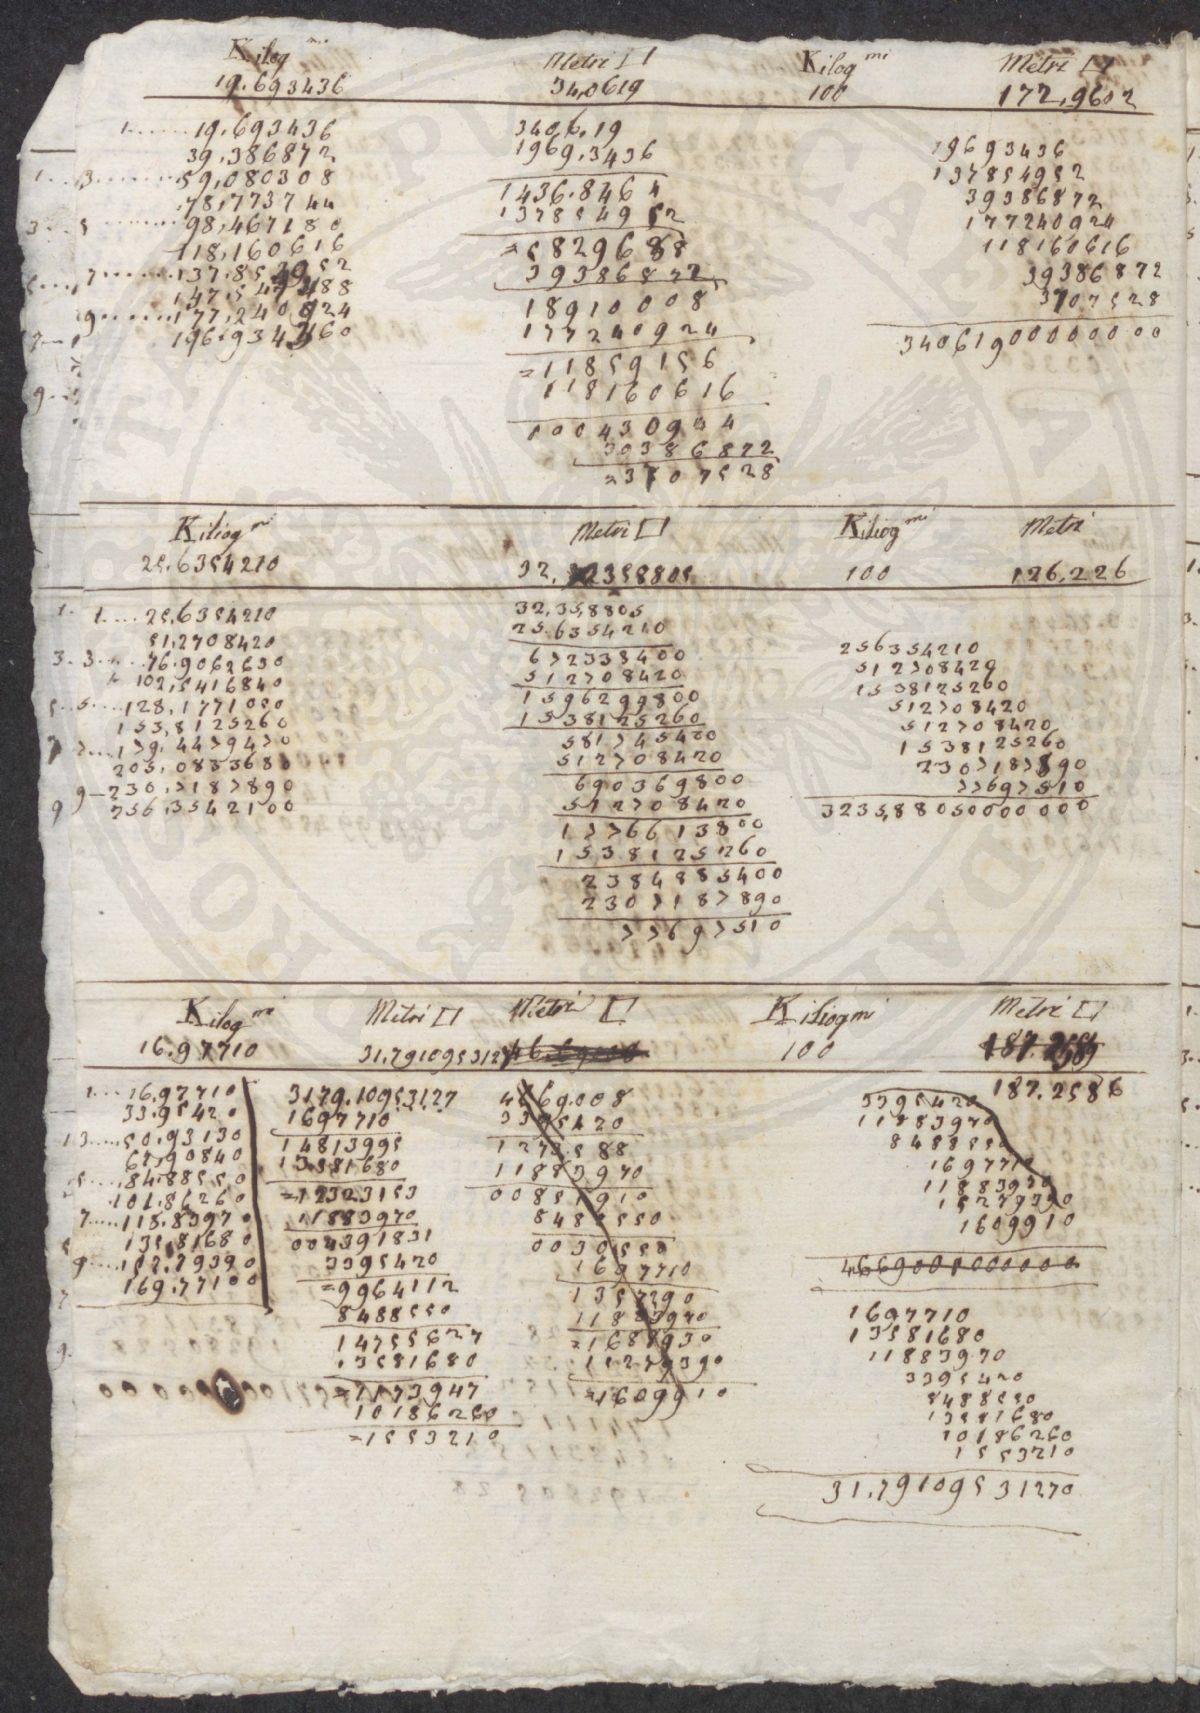 Kilog mi Metri □ Kilog mi Metri □
19.693436 34,0619 100 172,9602
1 19,693436
39,386872
3 59,080308
78,773744
5 98,467180
118,160616
7 137,854952
147,547488
9 177,240924
196,934360
3406,19
1969,3436
1436,8464
137854952
=5829688
39386872
18910008
177240924
=11859156
118160616
100430944
30386872
=3707528
19693436
137854952
39386872
177240924
118160616
39386872
3707528
34061900000000
Kiliog mi Metri □ Kiliog mi Metri
25.6354210 32,32358805 100 126,226
1 25,6354210
51,2708420
3 76,9062630
102,5416840
5 128,1771050
153,8125260
7 179,4479470
205,0833680
9 230,7187890
256,3542100
32,358805
25.6354210
672338400
512708420
1596299800
1538125260
581745400
512708420
690369800
512708420
1776613800
1538125260
2384885400
2307187890
77697510
256354210
512708420
1538125260
512708420
512708420
1538125260
2307187890
77697510
3235,880500000000
Kilog mi Metri □ Metri □ Kiliogmi Metri □
16.97710 31.7910953127 46.69008 100 187.2589
187.2586
1 16.97710
33.95420
3 50.93130
67.90840
5 84.88550
101.86260
7 118.83970
135,81680
9 152.79390
169.77100
3179.10953127
1697710
14813995
13581680
=12323153
11883970
004391831
3395420
=9964112
8488550
14755627
13581680
=1173947
10186260
=1553210
4669.008
3395420
1273588
11883970
00851910
8488550
0030550
1697710
1357290
11883970
=1688930
15279390
=1609910
3395420
11883970
8488550
1697710
11883970
15279390
1609910
466900800000
1697710
13581680
11883970
3395420
8488550
13581680
10186260
1553210
31.79109531270